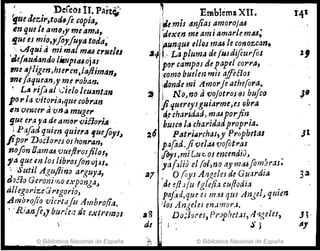 Defeos II. Parte
que dezir, todo se copia,
en que le amo, y me ama,
que es mio, y soy suya toda,
Aqui à mi mal mas crueles
desnudando
me afligen, hieren, lastiman,
me saquean, y me roban.
La risa al Cielo leuantan
por la vitoria, que cobran
en vencer à vna muger
que era ya de amor victoria
Pasad quien quiera que soys,
si por Doctores os honran,
no son llamas vuestros filos,
ya que en los libros son ojas.
Sutil Agustino arguya,
docto Geronimo exponga,
allegorize Gregorio,
Ambrosio vierta su Ambrosia.
Rianse, y burlen de extremos
de
26
27
28
Emblema XII.
141
de mis ansias amorosas
dexen me ami amarle mas,
aunque ellos mas le conozcan,
La pluma de sus discursos
por campos de papel corra,
como buelen mis affectos
donde mi Amor se athesora.
No, no à vosotros os busco
si quereys guiarme, es obra
de charidad, mas por sin
busco la charidad propria.
Patriarchas, y Prophetas
pasad, si velas vosotras
soys, mi Luz os encendiò,
ya saliò el sol, no ay mas sombras:
O soys Angeles de Guardia
de esta su Iglesia custodia
pasad, que es mas que Angel, quien
los Angeles enamora.
Doctores, Prophetas, Angeles,
S 3
ay
29
30
31
32
33
© Biblioteca Nacional de España
© Biblioteca Nacional de España